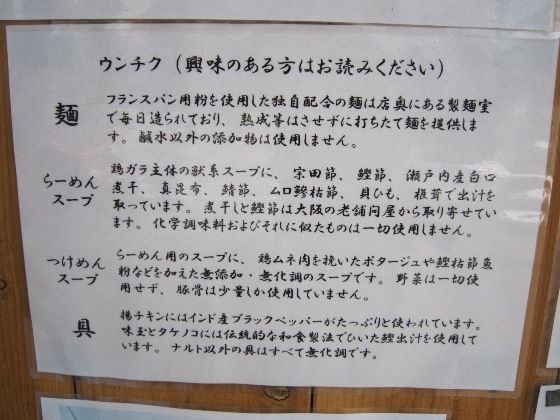 ウンチク（興味のある方はお読みください）
麺
フランスパン用粉を使用した独自配合の麺は店奥にある製麺室
で毎日造られており、熟成等はさせずに打ちたて麺を提供しま
す。鹹水以外の添加物は使用しません。
らーめん
スープ
鶏ガラ主体の獣系スープに、宗田節、鰹節、瀬戸内産白口
煮干、真昆布、鯖節、ムロ鰺枯節、貝ひも、椎茸で出汁を
取っています。煮干しと鰹節は大阪の老舗問屋から取り寄せてい
ます。化学調味料およびそれに似たものは一切使用しません。
つけめん
スープ
らーめん用のスープに、鶏ムネ肉を挽いたポタージュや鰹枯節魚
粉などを加えた無添加・無化調のスープです。野菜は一切使
用せず、豚骨は少量しか使用していません。
具
揚チキンにはインド産ブラックペッパーがたっぷりと使われています。
味玉とタケノコには伝統的な和食製法でひいた鰹出汁を使用して
います。ナルト以外の具はすべて無化調です。